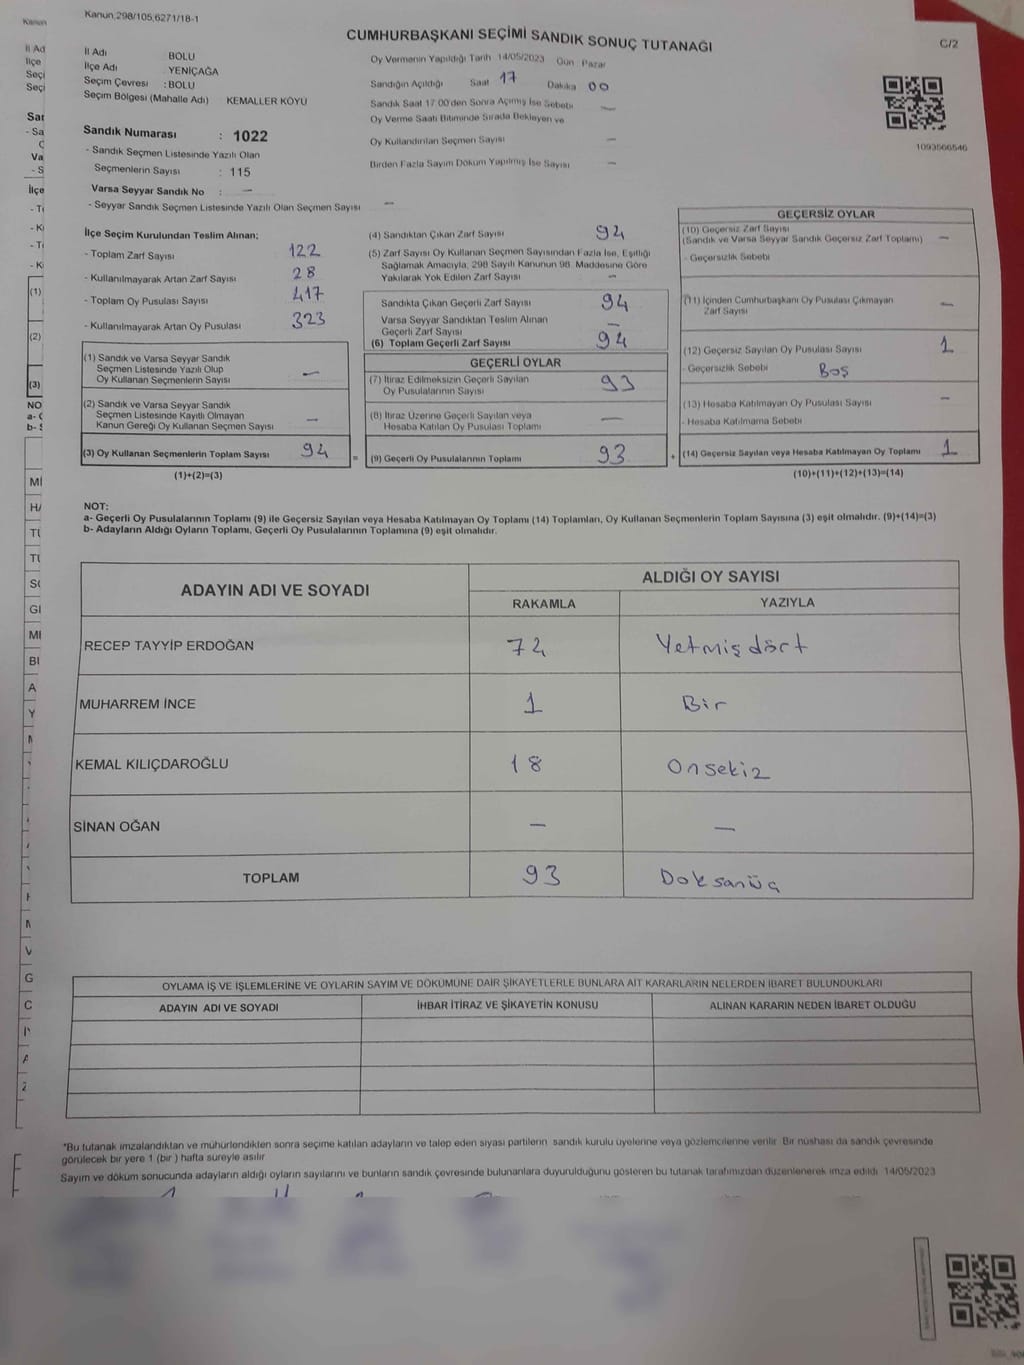 Kanun,298/105,6271/18-1
CUMHURBAŞKANI SEÇİMİ SANDIK SONUÇ TUTANAĞI
C/2
İl Adı BOLU
İlçe Adı YENİÇAĞA
Seçim Çevresi : BOLU
Seçim Bölgesi (Mahalle Adı) KEMALLER KÖYÜ
Oy Vermenin Yapıldığı Tarih 14/05/2023 Gün Pazar
Sandığın Açıldığı Saat 17 Dakika 00
Sandık Saat 17:00'den Sonra Açılmış İse Sebebi —
Oy Verme Saati Bitiminde Sırada Bekleyen ve
Oy Kullandırılan Seçmen Sayısı —
Birden Fazla Sayım Döküm Yapılmış İse Sayısı —
1093566546
Sandık Numarası : 1022
- Sandık Seçmen Listesinde Yazılı Olan
Seçmenlerin Sayısı : 115
Varsa Seyyar Sandık No : —
- Seyyar Sandık Seçmen Listesinde Yazılı Olan Seçmen Sayısı —
İlçe Seçim Kurulundan Teslim Alınan;
- Toplam Zarf Sayısı 122
- Kullanılmayarak Artan Zarf Sayısı 28
- Toplam Oy Pusulası Sayısı 417
- Kullanılmayarak Artan Oy Pusulası 323
(1) Sandık ve Varsa Seyyar Sandık
Seçmen Listesinde Yazılı Olup
Oy Kullanan Seçmenlerin Sayısı —
(2) Sandık ve Varsa Seyyar Sandık
Seçmen Listesinde Kayıtlı Olmayan
Kanun Gereği Oy Kullanan Seçmen Sayısı —
(3) Oy Kullanan Seçmenlerin Toplam Sayısı 94
(1)+(2)=(3)
(4) Sandıktan Çıkan Zarf Sayısı 94
(5) Zarf Sayısı Oy Kullanan Seçmen Sayısından Fazla İse, Eşitliği
Sağlamak Amacıyla, 298 Sayılı Kanunun 98. Maddesine Göre
Yakılarak Yok Edilen Zarf Sayısı —
Sandıkta Çıkan Geçerli Zarf Sayısı 94
Varsa Seyyar Sandıktan Teslim Alınan
Geçerli Zarf Sayısı —
(6) Toplam Geçerli Zarf Sayısı 94
GEÇERLİ OYLAR
(7) İtiraz Edilmeksizin Geçerli Sayılan
Oy Pusulalarının Sayısı 93
(8) İtiraz Üzerine Geçerli Sayılan veya
Hesaba Katılan Oy Pusulası Toplamı —
= (9) Geçerli Oy Pusulalarının Toplamı 93
GEÇERSİZ OYLAR
(10) Geçersiz Zarf Sayısı
(Sandık ve Varsa Seyyar Sandık Geçersiz Zarf Toplamı) —
- Geçersizlik Sebebi
(11) İçinden Cumhurbaşkanı Oy Pusulası Çıkmayan
Zarf Sayısı —
(12) Geçersiz Sayılan Oy Pusulası Sayısı 1
- Geçersizlik Sebebi Boş
(13) Hesaba Katılmayan Oy Pusulası Sayısı —
- Hesaba Katılmama Sebebi
+ (14) Geçersiz Sayılan veya Hesaba Katılmayan Oy Toplamı 1
(10)+(11)+(12)+(13)=(14)
NOT:
a- Geçerli Oy Pusulalarının Toplamı (9) ile Geçersiz Sayılan veya Hesaba Katılmayan Oy Toplamı (14) Toplamları, Oy Kullanan Seçmenlerin Toplam Sayısına (3) eşit olmalıdır. (9)+(14)=(3)
b- Adayların Aldığı Oyların Toplamı, Geçerli Oy Pusulalarının Toplamına (9) eşit olmalıdır.
ADAYIN ADI VE SOYADI ALDIĞI OY SAYISI
RAKAMLA YAZIYLA
RECEP TAYYİP ERDOĞAN 74 Yetmiş dört
MUHARREM İNCE 1 Bir
KEMAL KILIÇDAROĞLU 18 Onsekiz
SİNAN OĞAN — —
TOPLAM 93 Doksanüç
OYLAMA İŞ VE İŞLEMLERİNE VE OYLARIN SAYIM VE DÖKÜMÜNE DAİR ŞİKAYETLERLE BUNLARA AİT KARARLARIN NELERDEN İBARET BULUNDUKLARI
ADAYIN ADI VE SOYADI İHBAR İTİRAZ VE ŞİKAYETİN KONUSU ALINAN KARARIN NEDEN İBARET OLDUĞU
*Bu tutanak imzalandıktan ve mühürlendikten sonra seçime katılan adayların ve talep eden siyasi partilerin sandık kurulu üyelerine veya gözlemcilerine verilir. Bir nüshası da sandık çevresinde
görülecek bir yere 1 (bir ) hafta süreyle asılır
Sayım ve döküm sonucunda adayların aldığı oyların sayılarını ve bunların sandık çevresinde bulunanlara duyurulduğunu gösteren bu tutanak tarafımızdan düzenlenerek imza edildi 14/05/2023